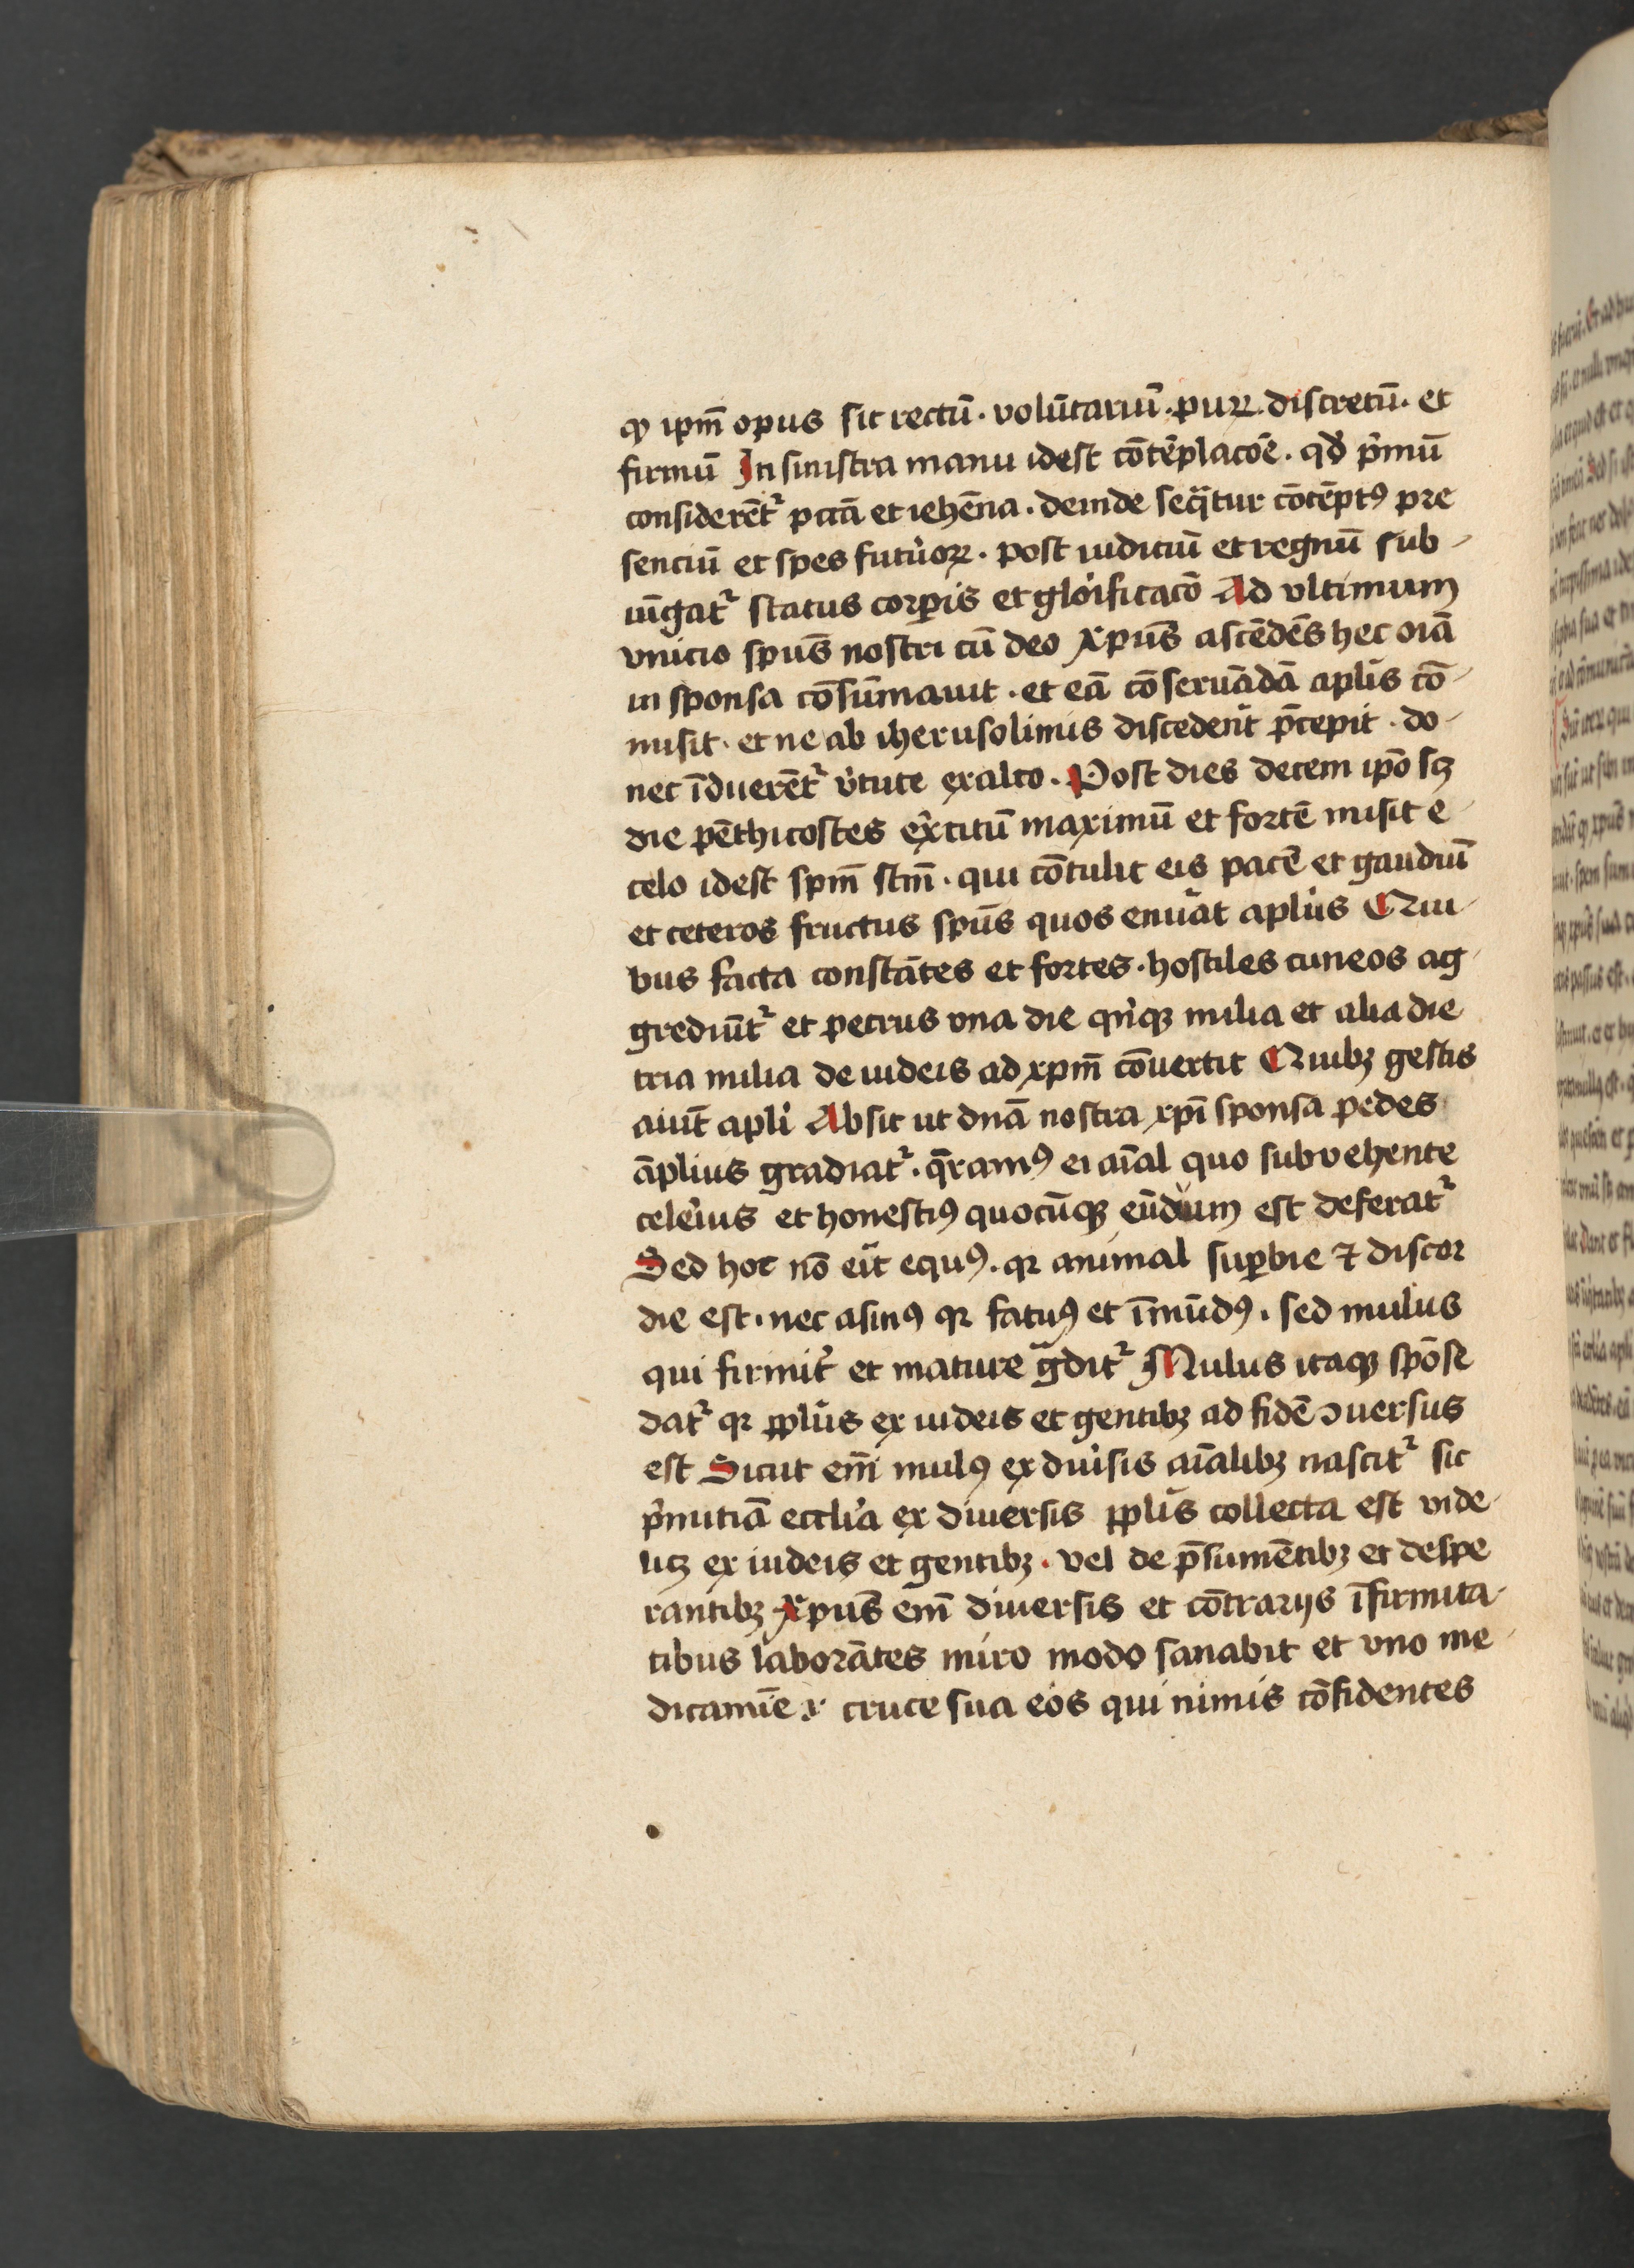 ꝙ ip̄m opus sit rectū · volūtariū · puꝝ · discretū · et
firmū In sinistra manu idest cōtēplacōe · qđ p̓mū
considerēt᷑ pctā et iehēna · deinde seq̄tur cōtēptꝰ pre
senciū et spes futu̓oꝝ · post iudiciū et regnū sub-
iūgat᷑ status corꝑis et glo̓ificacō Ad vltimum
vnicio spūs nostri cū deo xp̄us ascēdēs hec oīa
in sponsa cōsūmauit · et eā cōseruādā apl̓is cō-
misit · et ne ab iherusolimis discederēt p̄cepit · do-
nec īduerēt᷑ v̓tute exalto · Post dies decem ip̄o scꝫ
die pēthicostes ex̓citū maximū et fortē misit e
celo idest sp̄m sc̄m · qui cōtulit eis pacē et gaudiū
et ceteros fructus sp̄us quos enūat apl̓us Qui-
bus facta constātes et fortes · hostiles cuneos ag-
grediūt᷑ et petrus vna die qn̓qꝫ milia et alia die
tria milia de iudeis ad xp̄m cōuertit Quibꝫ gestis
aiūt apl̓i Absit ut dn̄a nostra xp̄i sponsa pedes
āplius gradiat᷑ · q̄ramꝰ ei aīal quo subvehente
cele̓ius et honestiꝰ quocūqꝫ eūdum est deferat᷑
Sed hoc nō eīt equꝰ · qr animal suꝑbie ⁊ discor
die est · nec asinꝰ qr fatuꝰ et īmūdꝰ · sed mulus
qui firmit̓ et mature gͣdit᷑ Mulus itaqꝫ spōse
dat᷑ qr ppl̓us ex iudeis et gentibꝫ ad fidē ꝯuersus
est Sicut em̄ mulꝰ ex diu̓sis aīalibꝫ nascit᷑ sic
p̓mitiā eccl̓ia ex diuersis ppl̓is collecta est vide-
licꝫ ex iudeis et gentibꝫ · vel de p̄sumētibꝫ et despe
rantibꝫ xp̄us em̄ diuersis et cōtrarijs īfirmita-
tibus laborātes miro modo sanabit et vno me-
dicamīe x cruce sua eos qui nimis cōfidentes